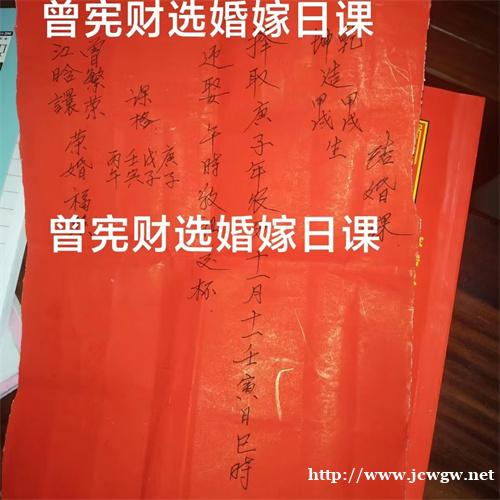 曾宪财选婚嫁日课
结婚课
乾造 甲戌
坤造 甲戌 生
择取庚子年农历十一月十一壬寅日巳時
迎娶 午時敬 交杯
课格 庚子 戊子 壬寅 丙午
曾繁荣
江晗讓 荣婚福
曾宪财选婚嫁日课
http://www.jcwgw.net/